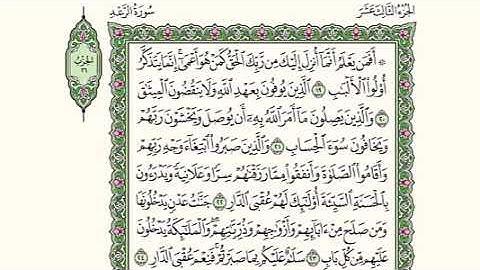 الجزء الثالث عشر
سورة الرعد
الحزب
٢٦
۞ أَفَمَن يَعْلَمُ أَنَّمَا أُنزِلَ إِلَيْكَ مِن رَّبِّكَ الْحَقُّ كَمَنْ هُوَ أَعْمَىٰ إِنَّمَا يَتَذَكَّرُ
أُو۟لُوا۟ الْأَلْبَٰبِ ١٩ الَّذِينَ يُوفُونَ بِعَهْدِ اللَّهِ وَلَا يَنقُضُونَ الْمِيثَٰقَ
٢٠ وَالَّذِينَ يَصِلُونَ مَا أَمَرَ اللَّهُ بِهِۦ أَن يُوصَلَ وَيَخْشَوْنَ رَبَّهُمْ
وَيَخَافُونَ سُوٓءَ الْحِسَابِ ٢١ وَالَّذِينَ صَبَرُوا۟ ابْتِغَآءَ وَجْهِ رَبِّهِمْ
وَأَقَامُوا۟ الصَّلَوٰةَ وَأَنفَقُوا۟ مِمَّا رَزَقْنَٰهُمْ سِرًّا وَعَلَانِيَةً وَيَدْرَءُونَ
بِالْحَسَنَةِ السَّيِّئَةَ أُو۟لَٰٓئِكَ لَهُمْ عُقْبَى الدَّارِ ٢٢ جَنَّٰتُ عَدْنٍ يَدْخُلُونَهَا
وَمَن صَلَحَ مِنْ ءَابَآئِهِمْ وَأَزْوَٰجِهِمْ وَذُرِّيَّٰتِهِمْ وَالْمَلَٰٓئِكَةُ يَدْخُلُونَ
عَلَيْهِم مِّن كُلِّ بَابٍ ٢٣ سَلَٰمٌ عَلَيْكُم بِمَا صَبَرْتُمْ فَنِعْمَ عُقْبَى الدَّارِ ٢٤